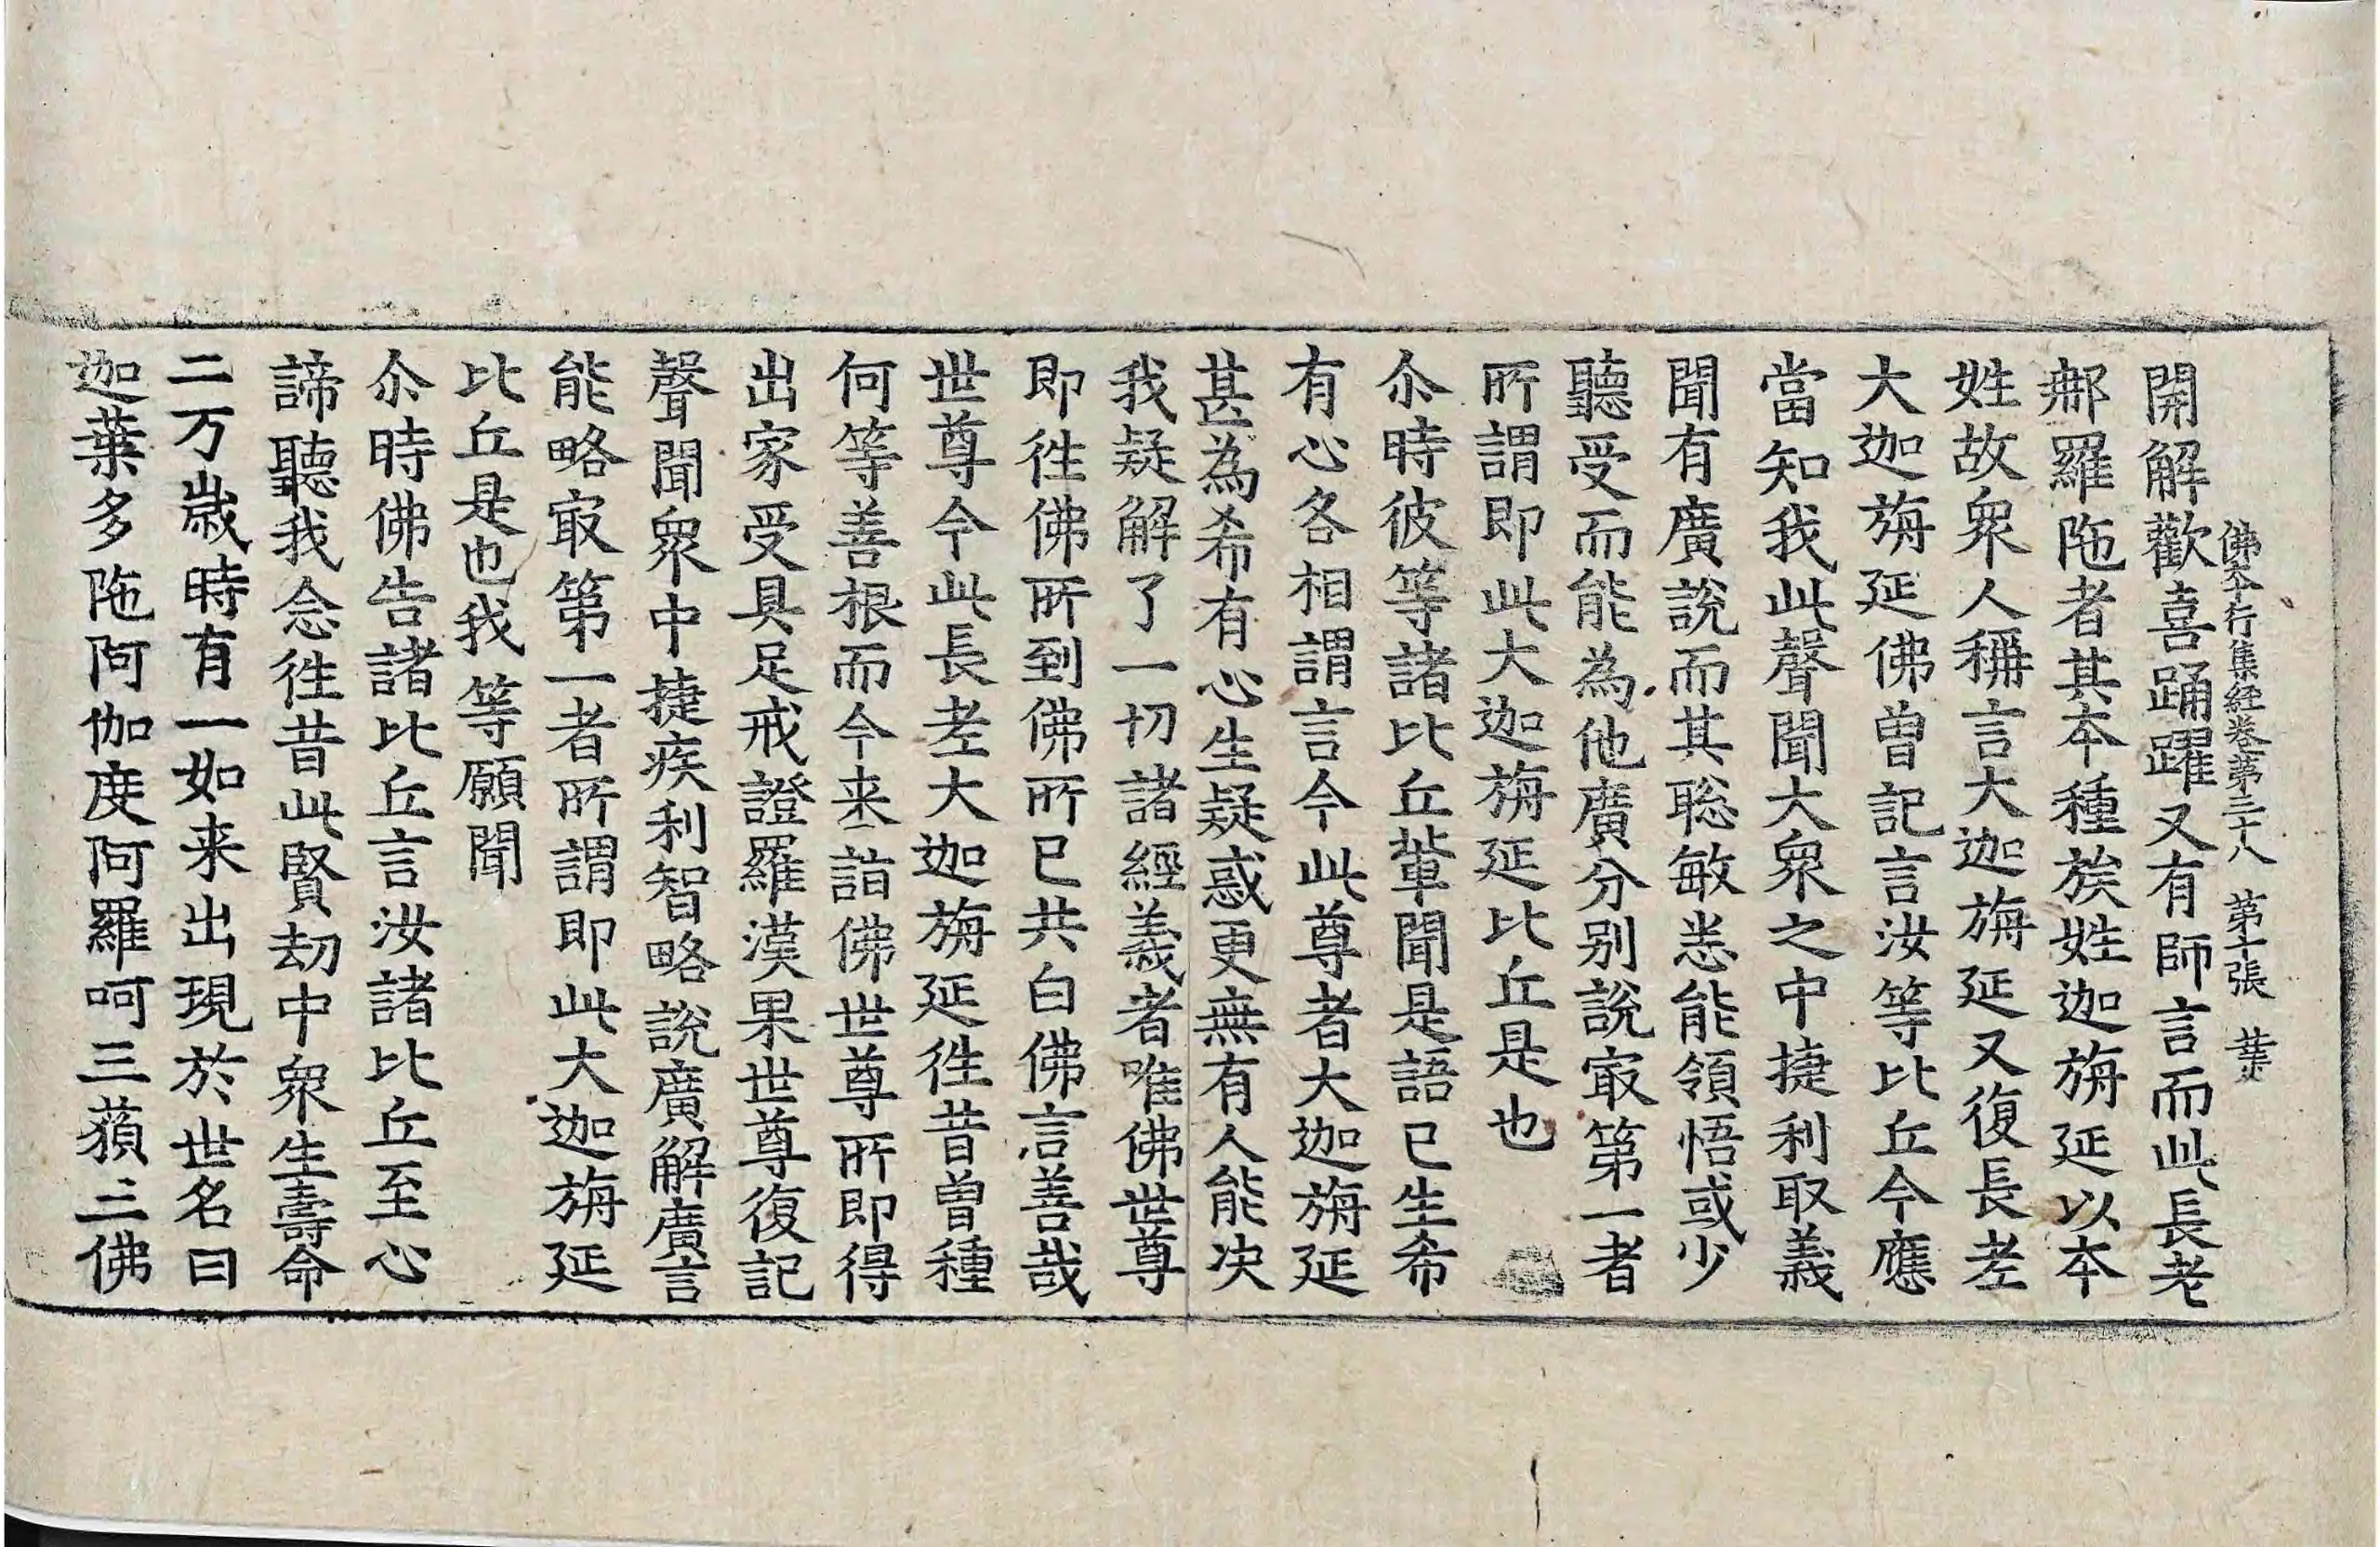 佛本行集經卷第三十八 第十張
開解歡喜踊躍又有師言而此長老
𨚗羅陁者其夲種族姓迦旃延以夲
姓故衆人稱言大迦旃延又復長老
大迦旃延佛曽記言汝等比丘今應
當知我此聲聞大衆之中捷利取義
聞有廣說而其聡敏悉能領悟或少
聽受而能為他廣分别說㝡第一者
所謂即此大迦旃延比丘是也
尒時彼等諸比丘輩聞是語已生希
有心各相謂言今此尊者大迦旃延
甚為希有心生疑惑更無有人能决
我疑解了一切諸經義者唯佛世尊
即徃佛所到佛所已共白佛言善哉
世尊今此長老大迦旃延徃昔曽種
何等善根而今来詣佛世尊所即得
出家受具足戒證羅漢果世尊復記
聲聞衆中捷疾利智略說廣解廣言
能略㝡第一者所謂即此大迦旃延
比丘是也我等願聞
尒時佛告諸比丘言汝諸比丘至心
諦聽我念徃昔此賢劫中衆生壽命
二万歲時有一如来出現於世名曰
迦葉多陁阿伽度阿羅呵三藐三佛